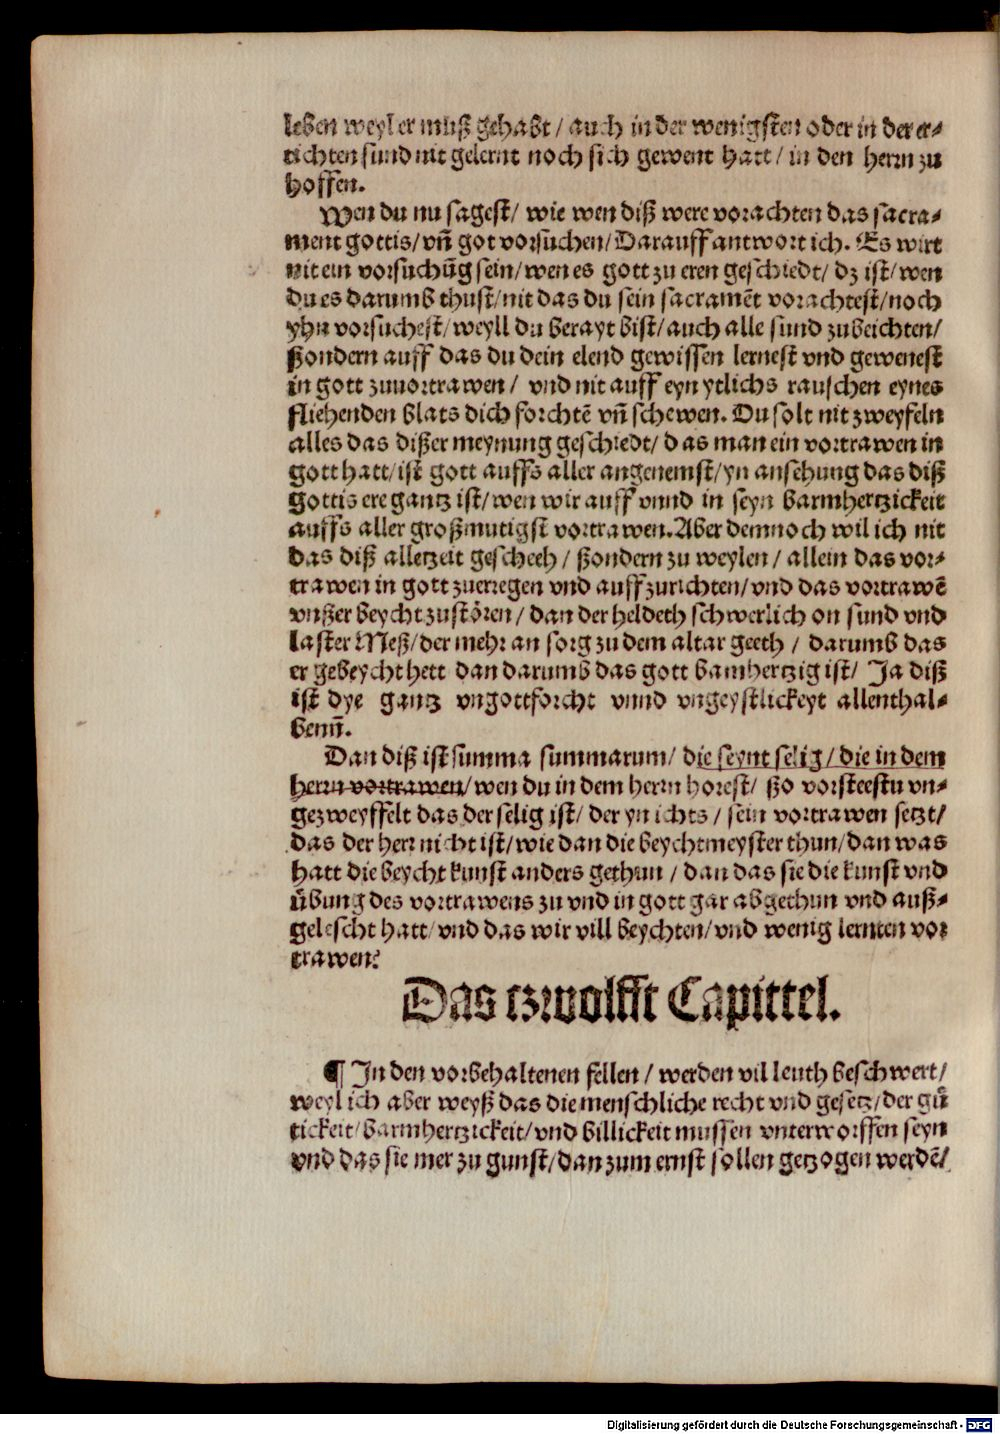 leben weyl er muß gehabt / auch in der wenigsten oder in der er-
tichten sund nit gelernt noch sich gewent hatt / in den herrn zu
hoffen.
Wen du nu sagest / wie wen diß were vorachten das sacra-
ment gottis / vñ got vorsuchen / Darauff antwort ich. Es wirt
nit ein vorsuchũg sein / wen es gott zu eren geschiedt / dz ist / wen
du es darumb thust / nit das du sein sacramẽt vorachtest / noch
yhn vorsuchest / weyll du berayt bist / auch alle sund zubeichten /
ßondern auff das du dein elend gewissen lernest vnd gewenest
in gott zuuortrawen / vnd nit auff eyn ytlichs rauschen eynes
fliehenden blats dich forchtẽ vñ schewen. Du solt nit zweyfeln
alles das dißer meynung geschiedt / das man ein vortrawen in
gott hatt / ist gott auffs aller angenemst / yn ansehung das diß
gottis ere gantz ist / wen wir auff vnnd in seyn barmhertzickeit
auffs aller großmutigst vortrawen. Aber demnoch wil ich nit
das diß alletzeit gescheeh / ßondern zu weylen / allein das vor-
trawen in gott zuerregen vnd auffzurichten / vnd das vortrawẽ
vnßer beycht zustören / dan der heldeth schwerlich on sund vnd
laster Meß / der mehr an sorg zu dem altar geeth / darumb das
er gebeycht hett dan darumb das gott bamhertzig ist / Ja diß
ist dye gantz vngottforcht vnnd vngeystlickeyt allenthal-
benñ.
Dan diß ist summa summarum / die seynt selig / die in dem
herrn vortrawen / wen du in dem herrn horest / ßo vorsteestu vn-
gezweyffelt das der selig ist / der yn ichts / sein vortrawen setzt /
das der herr nicht ist / wie dan die beychtmeyster thun / dan was
hatt die beycht kunst anders gethun / dan das sie die kunst vnd
übung des vortrawens zu vnd in gott gar abgethun vnd auß-
gelescht hatt / vnd das wir vill beychten / vnd wenig lernten vor
trawen?
Das tzwolfft Capittel.
¶ In den vorbehaltenen fellen / werden vil leuth beschwert /
weyl ich aber weyß das die menschliche recht vnd gesetz / der gü
tickeit / barmhertzickeit / vnd billickeit mussen vnterworffen seyn
vnd das sie mer zu gunst / dan zum ernst sollen getzogen werdẽ /
Digitalisierung gefördert durch die Deutsche Forschungsgemeinschaft - DFG